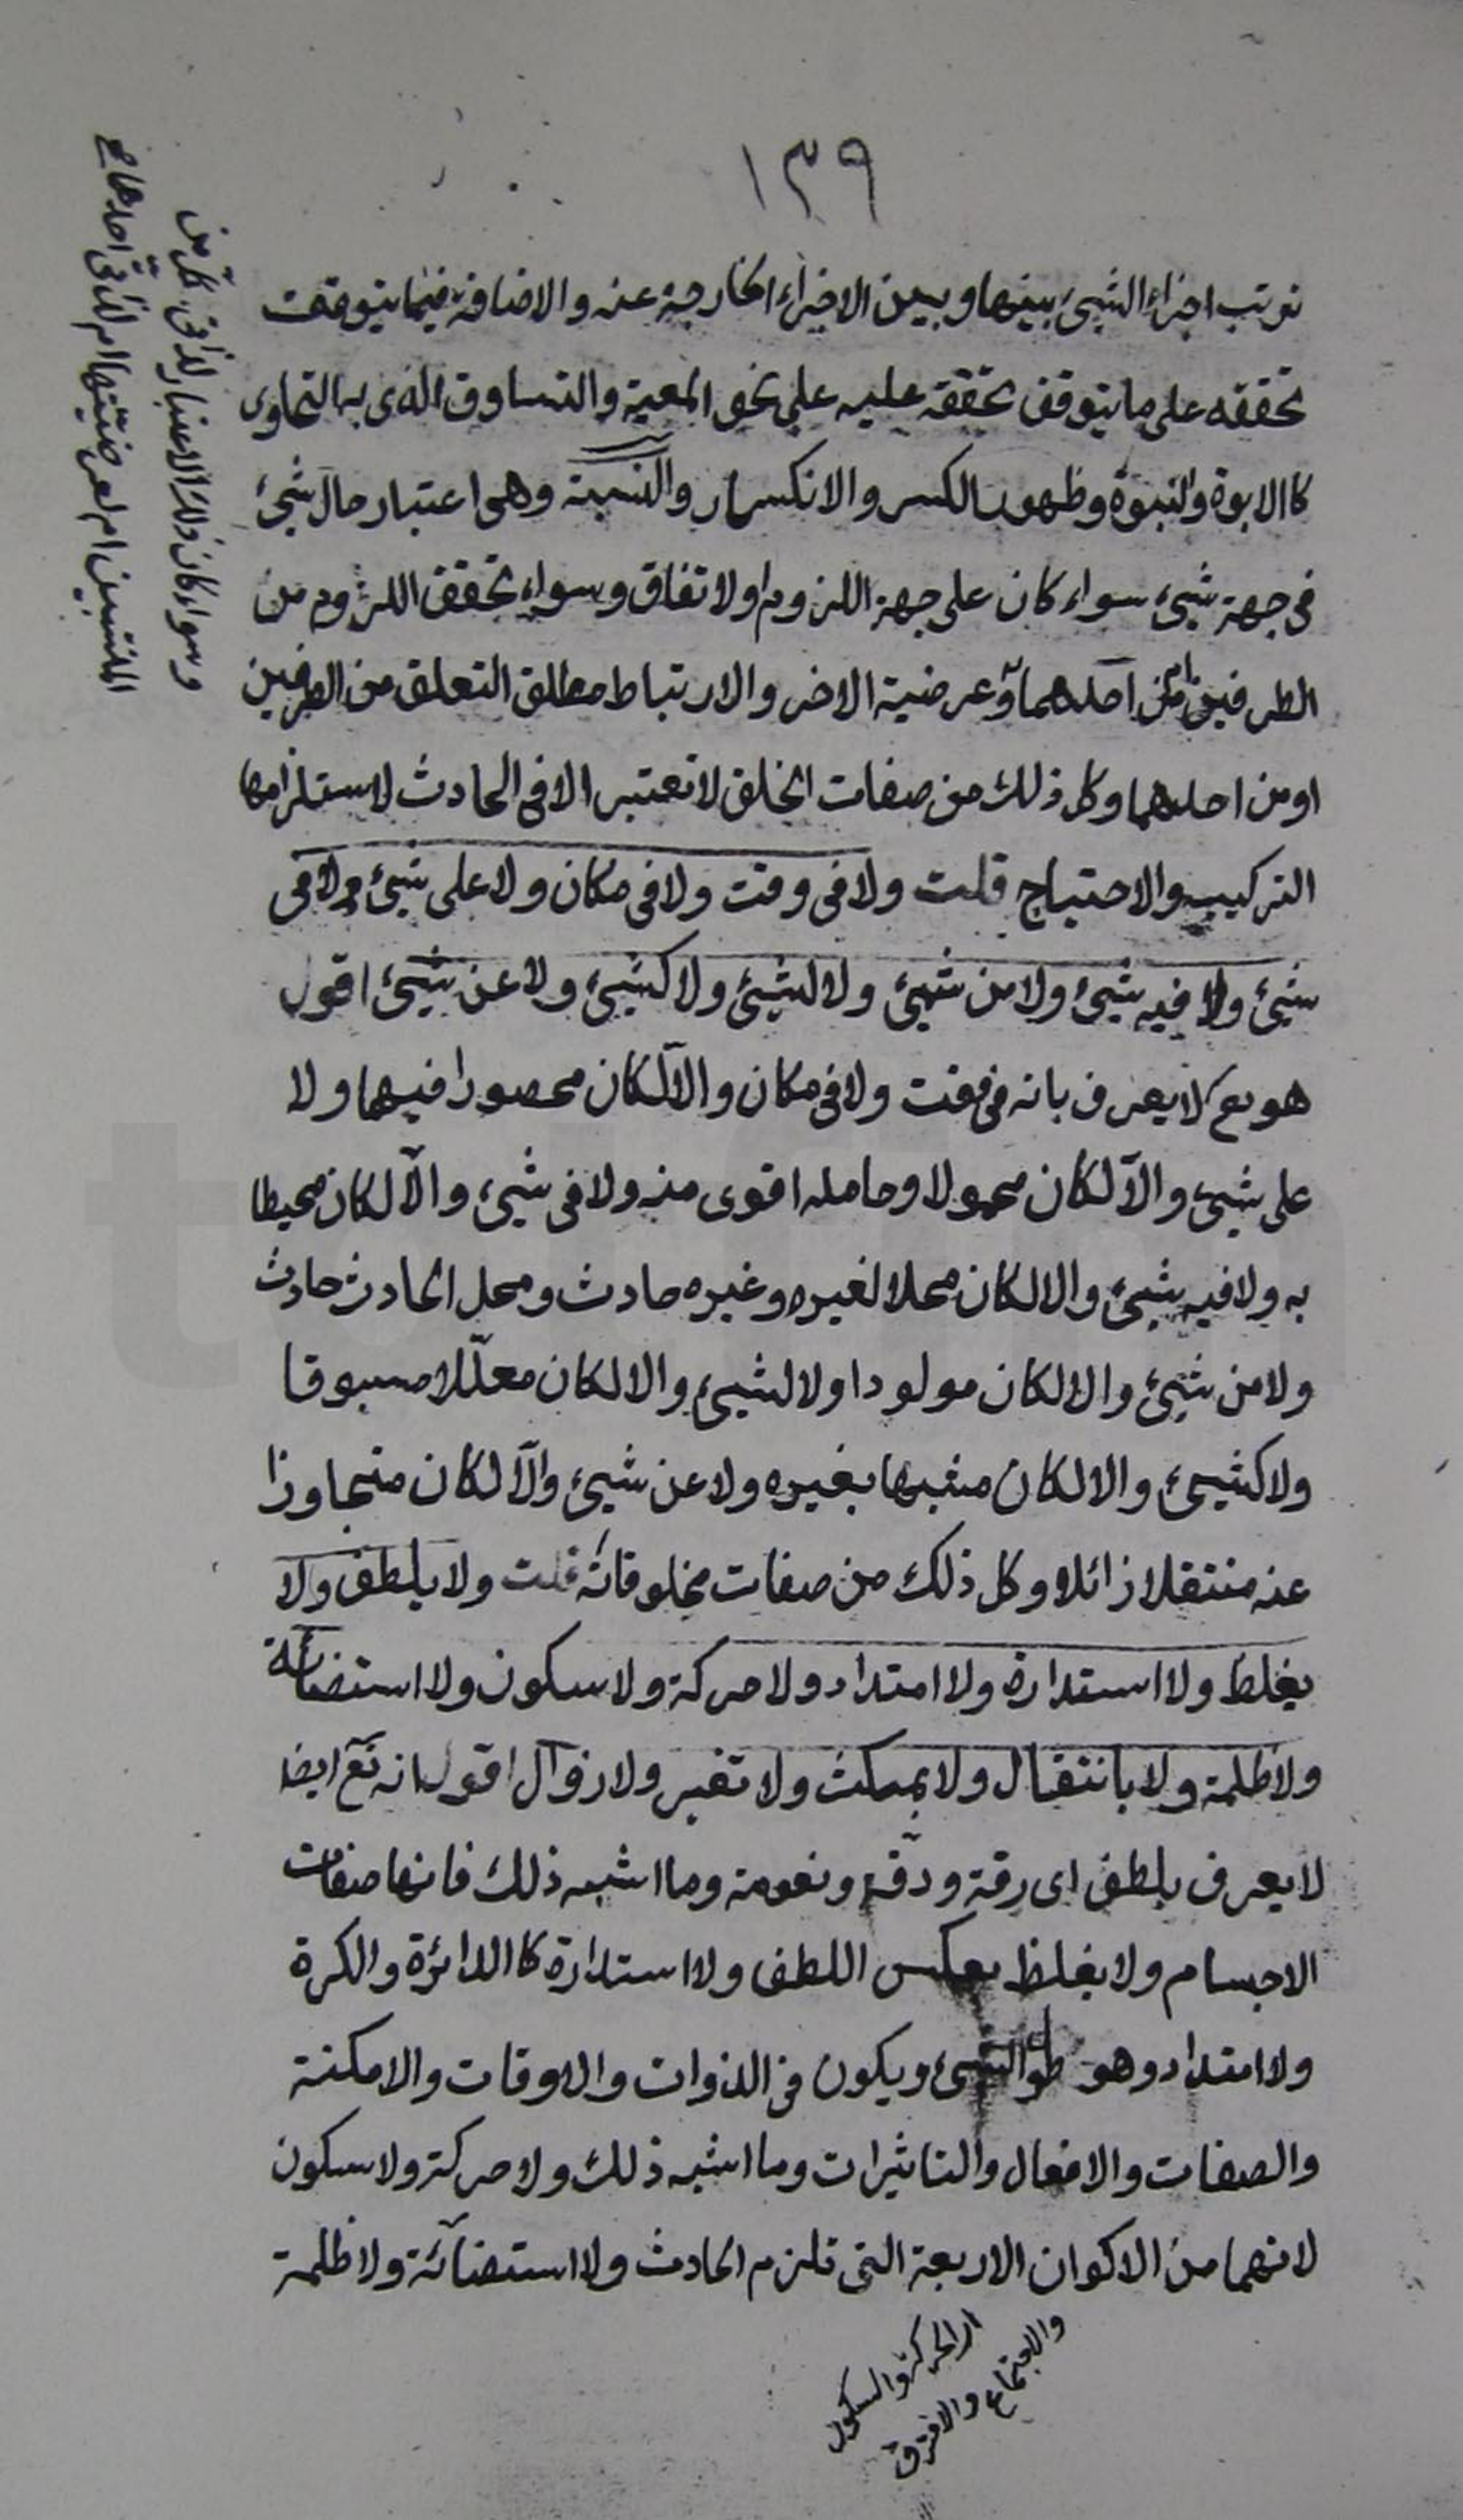 ١٣٩
ترتب اجزاء الشيئ بينها وبين الاجزاء الخارجة عنه والاضافة فيما يتوقف
تحققه على ما يتوقف تحققه عليه على نحو المعية والتساوق الذى به التحاوى
كالابوة والنبوة وظهور الكسر والانكسار والنسبة وهى اعتبار حال شيئ
فى جهة شيئ سواء كان على جهة اللزوم او الاتفاق وسواء تحقق اللزوم من
الطرفين ام من احدهما وعرضية الاخر والارتباط مطلق التعلق من الطرفين
او من احدهما وكل ذلك من صفات الخلق لا تعتبر الا فى الحادث لاستلزامها
التركيب والاحتياج قلت ولا فى وقت ولا فى مكان ولا على شيئ ولا فى
شيئ ولا فيه شيئ ولا من شيئ ولا لشيئ ولا كشيئ ولا عن شيئ اقول
هو تع لا يعرف بانه فى وقت ولا فى مكان والا لكان محصورا فيهما ولا
على شيئ والا لكان محمولا وحامله اقوى منه ولا فى شيئ والا لكان محيطا
به ولا فيه شيئ والا لكان محلا لغيره وغيره حادث ومحل الحادث حادث
ولا من شيئ والا لكان مولودا ولا لشيئ والا لكان معللا مسبوقا
ولا كشيئ والا لكان مشبها بغيره ولا عن شيئ والا لكان متجاوزا
عنه منتقلا زائلا وكل ذلك من صفات مخلوقاته قلت ولا بلطف ولا
بغلظ ولا استدارة ولا امتداد ولا حركة ولا سكون ولا استضائة
ولا ظلمة ولا بانتقال ولا بمكث ولا تغير ولا زوال اقول انه تع ايضا
لا يعرف بلطف اى رقة ودقة ونعومة وما اشبه ذلك فانها صفات
الاجسام ولا بغلظ بعكس اللطف ولا استدارة كالدائرة والكرة
ولا امتداد وهو طول الشيئ ويكون فى الذوات والاوقات والامكنة
والصفات والافعال والتاثيرات وما اشبه ذلك ولا حركة ولا سكون
لانهما من الاكوان الاربعة التى تلزم الحادث ولا استضائة ولا ظلمة
الحركة والسكون
والاجتماع والافتراق
وسواء كان ذلك الاعتبار لذاتى كل من
المنتسبين ام لعرضيتهما ام لذاتى احدهما